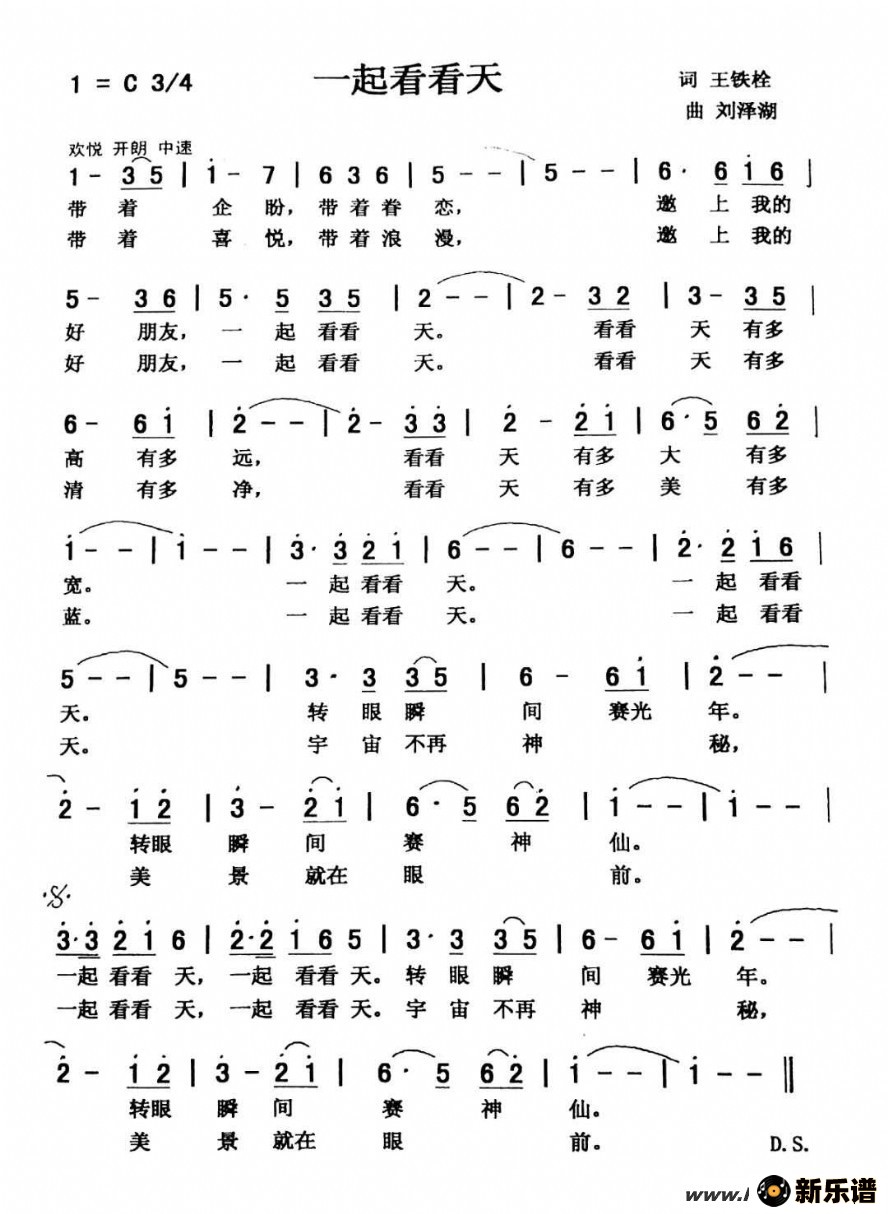 1 = C 3/4
一起看看天
词 王铁栓
曲 刘泽湖
欢悦 开朗 中速
1 - 3 5 | i - 7 | 6 3 6 | 5 - - | 5 - - | 6· 6 i 6 |
带着 企盼，带着眷恋， 邀上我的
带着 喜悦，带着浪漫， 邀上我的
5 - 3 6 | 5· 5 3 5 | 2 - - | 2 - 3 2 | 3 - 3 5 |
好 朋友，一起看看天。 看看 天 有多
好 朋友，一起看看天。 看看 天 有多
6 - 6 i | 2̇ - - | 2̇ - 3̇ 3̇ | 2̇ - 2̇ i | 6· 5 6 2̇ |
高 有多 远， 看看 天 有多 大 有多
清 有多 净， 看看 天 有多 美 有多
i - - | i - - | 3̇· 3̇ 2̇ i | 6 - - | 6 - - | 2̇· 2̇ i 6 |
宽。 一起看看 天。 一起看看
蓝。 一起看看 天。 一起看看
5 - - | 5 - - | 3· 3 3 5 | 6 - 6 i | 2̇ - - |
天。 转眼瞬 间 赛光 年。
天。 宇宙不再 神 秘，
2̇ - i 2̇ | 3̇ - 2̇ i | 6· 5 6 2̇ | i - - | i - - |
转眼 瞬 间 赛 神 仙。
美 景 就在 眼 前。
3̇· 3̇ 2̇ i 6 | 2̇· 2̇ i 6 5 | 3· 3 3 5 | 6 - 6 i | 2̇ - - |
一起看看 天，一起看看天。转眼瞬 间 赛光 年。
一起看看 天，一起看看天。宇宙不再 神 秘，
2̇ - i 2̇ | 3̇ - 2̇ i | 6· 5 6 2̇ | i - - | i - - ‖
转眼 瞬 间 赛 神 仙。
美 景 就在 眼 前。 D.S.
www.
新乐谱